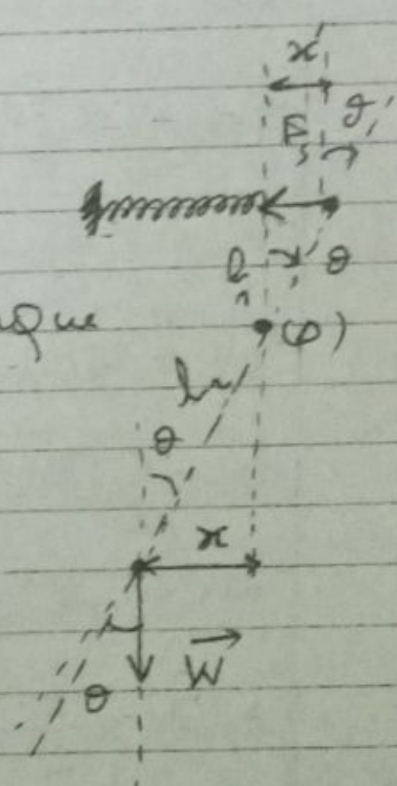 x'
θ
F_s
l_1
θ
que
(φ)
l_2
θ
x
W
θ